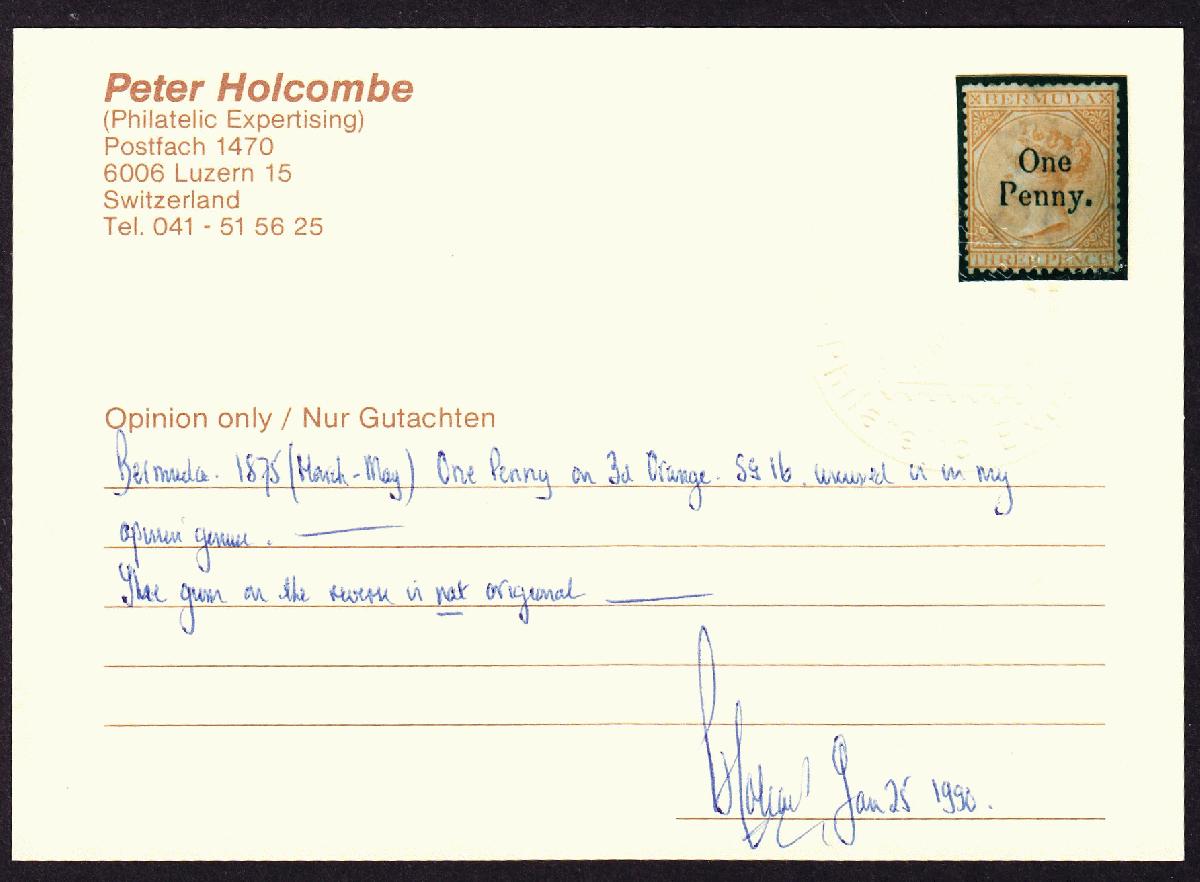 Peter Holcombe
(Philatelic Expertising)
Postfach 1470
6006 Luzern 15
Switzerland
Tel. 041 - 51 56 25
BERMUDA
One
Penny.
THREE PENCE
Opinion only / Nur Gutachten
Bermuda. 1875 (March - May) One Penny on 3d Orange. SG 16. unused is in my
opinion genuine.
The gum on the reverse is not original
Jan 25 1990.